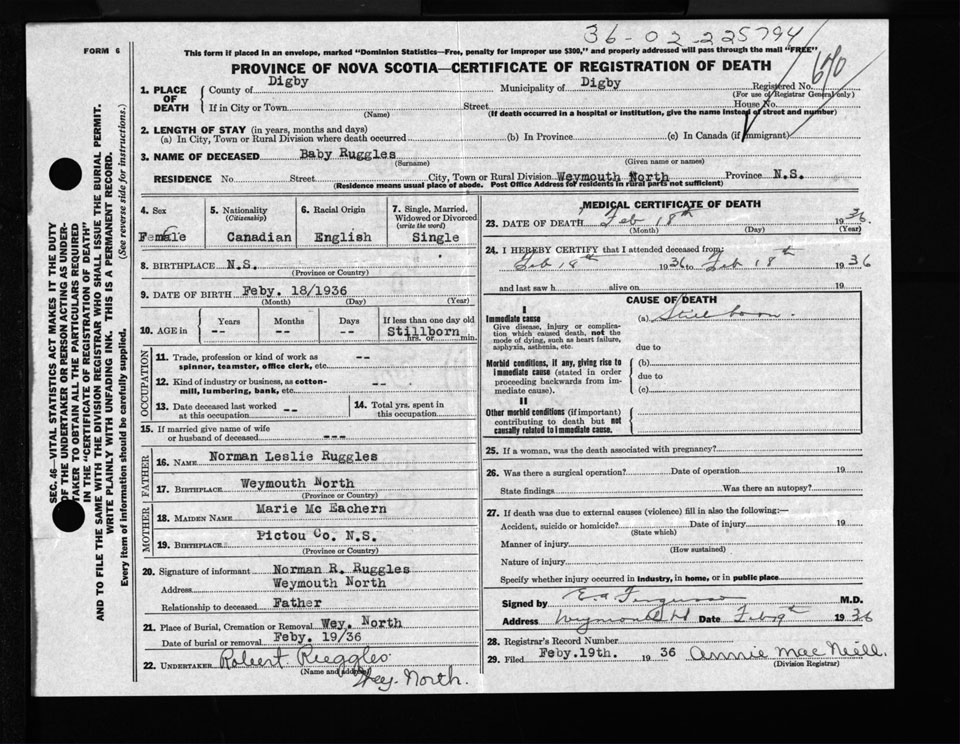 36-02-225794
FORM 6
This form if placed in an envelope, marked "Dominion Statistics—Free, penalty for improper use $300," and properly addressed will pass through the mail "FREE"
PROVINCE OF NOVA SCOTIA—CERTIFICATE OF REGISTRATION OF DEATH
670
1. PLACE OF DEATH
County of Digby Municipality of Digby Registered No.
(For use of Registrar General only)
If in City or Town Street House No.
(Name) (If death occurred in a hospital or institution, give the name instead of street and number)
2. LENGTH OF STAY (in years, months and days)
(a) In City, Town or Rural Division where death occurred (b) In Province (c) In Canada (if immigrant)
3. NAME OF DECEASED Baby Ruggles
(Surname) (Given name or names)
RESIDENCE No. Street City, Town or Rural Division Weymouth North Province N.S.
(Residence means usual place of abode. Post Office Address for residents in rural parts not sufficient)
4. Sex Female
5. Nationality (Citizenship) Canadian
6. Racial Origin English
7. Single, Married, Widowed or Divorced (write the word) Single
8. BIRTHPLACE N.S.
(Province or Country)
9. DATE OF BIRTH Feby. 18/1936
(Month) (Day) (Year)
10. AGE in Years -- Months -- Days -- If less than one day old Stillborn hrs. or min.
OCCUPATION
11. Trade, profession or kind of work as spinner, teamster, office clerk, etc. --
12. Kind of industry or business, as cotton-mill, lumbering, bank, etc. --
13. Date deceased last worked at this occupation --
14. Total yrs. spent in this occupation
15. If married give name of wife or husband of deceased ---
FATHER
16. NAME Norman Leslie Ruggles
17. BIRTHPLACE Weymouth North
(Province or Country)
MOTHER
18. MAIDEN NAME Marie Mc Eachern
19. BIRTHPLACE Pictou Co. N.S.
(Province or Country)
20. Signature of informant Norman R. Ruggles
Address Weymouth North
Relationship to deceased Father
21. Place of Burial, Cremation or Removal Wey. North
Date of burial or removal Feby. 19/36
22. UNDERTAKER Robert Ruggles
(Name and address)
Wey. North.
MEDICAL CERTIFICATE OF DEATH
23. DATE OF DEATH Feb 18th 1936.
(Month) (Day) (Year)
24. I HEREBY CERTIFY that I attended deceased from:
Feb 18th 1936 to Feb 18th 1936
and last saw h alive on 19
CAUSE OF DEATH
I
Immediate cause
Give disease, injury or complication which caused death, not the mode of dying, such as heart failure, asphyxia, asthenia, etc.
(a) Still born.
due to
Morbid conditions, if any, giving rise to immediate cause (stated in order proceeding backwards from immediate cause).
(b)
due to
(c)
II
Other morbid conditions (if important) contributing to death but not causally related to immediate cause.
25. If a woman, was the death associated with pregnancy?
26. Was there a surgical operation? Date of operation 19
State findings Was there an autopsy?
27. If death was due to external causes (violence) fill in also the following:—
Accident, suicide or homicide? Date of injury 19
(State which)
Manner of injury
(How sustained)
Nature of injury
Specify whether injury occurred in industry, in home, or in public place
Signed by M.D.
Address Weymouth Date Feb 19th 1936
28. Registrar's Record Number
29. Filed Feby. 19th. 1936 Annie Mac Neill.
(Division Registrar)
SEC. 46—VITAL STATISTICS ACT MAKES IT THE DUTY
OF THE UNDERTAKER OR PERSON ACTING AS UNDER-
TAKER TO OBTAIN ALL THE PARTICULARS REQUIRED
IN THE "CERTIFICATE OF REGISTRATION OF DEATH"
AND TO FILE THE SAME WITH THE DIVISION REGISTRAR WHO SHALL ISSUE THE BURIAL PERMIT.
WRITE PLAINLY WITH UNFADING INK. THIS IS A PERMANENT RECORD.
Every item of information should be carefully supplied. (See reverse side for instructions.)